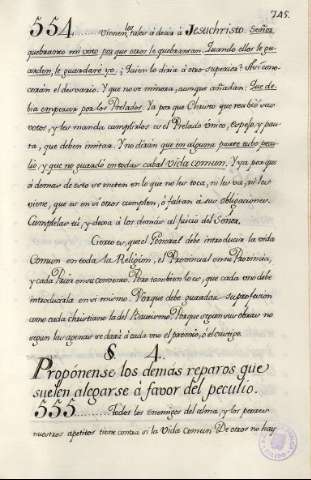 745.
554. Vienen tales á decir á Jesuchristo. Señor
quebranto mi voto porque otros le quebrantan. Quando ellos le guarden,
le guardaré yo. ¿Quien lo diria á otro superior? Asi conocerán
el desvario. Y que no es mirara, aunque añadan: Que debia
empezar por los Prelados. Ya porque Christo que recibió sus
votos, y les manda cumplirlos es el Prelado unico, espejo, y pauta,
que deben imitar. Y no dirán que en alguna parte tubo peculio,
y que no guardó en todas cabal Vida comun. Y ya porque
á demas de esto se meten en lo que no les toca, ni les va, ni les
viene, que es en si otros cumplen, ó faltan á sus obligaciones.
Cumplelas tú, y dexa á los demás al juicio del Señor.
Cierto es, que el General debe introducir la vida
Comun en toda la Religion, el Provincial en su Provincia,
y cada Prior en su convento. Pero tambien lo es, que cada uno debe
introducirla en si mismo. Porque debe guardar su profesion
como cada christiano la del Bautismo. Porque segun sus obras no
segun las agenas se dará á cada uno el premio, ó el castigo.
§ 4.
Propónense los demás reparos que
suelen alegarse á favor del peculio.
555. Todos los enemigos del alma, y los peores
nuestros apetitos tiene contra si la Vida Comun. De otros no hay